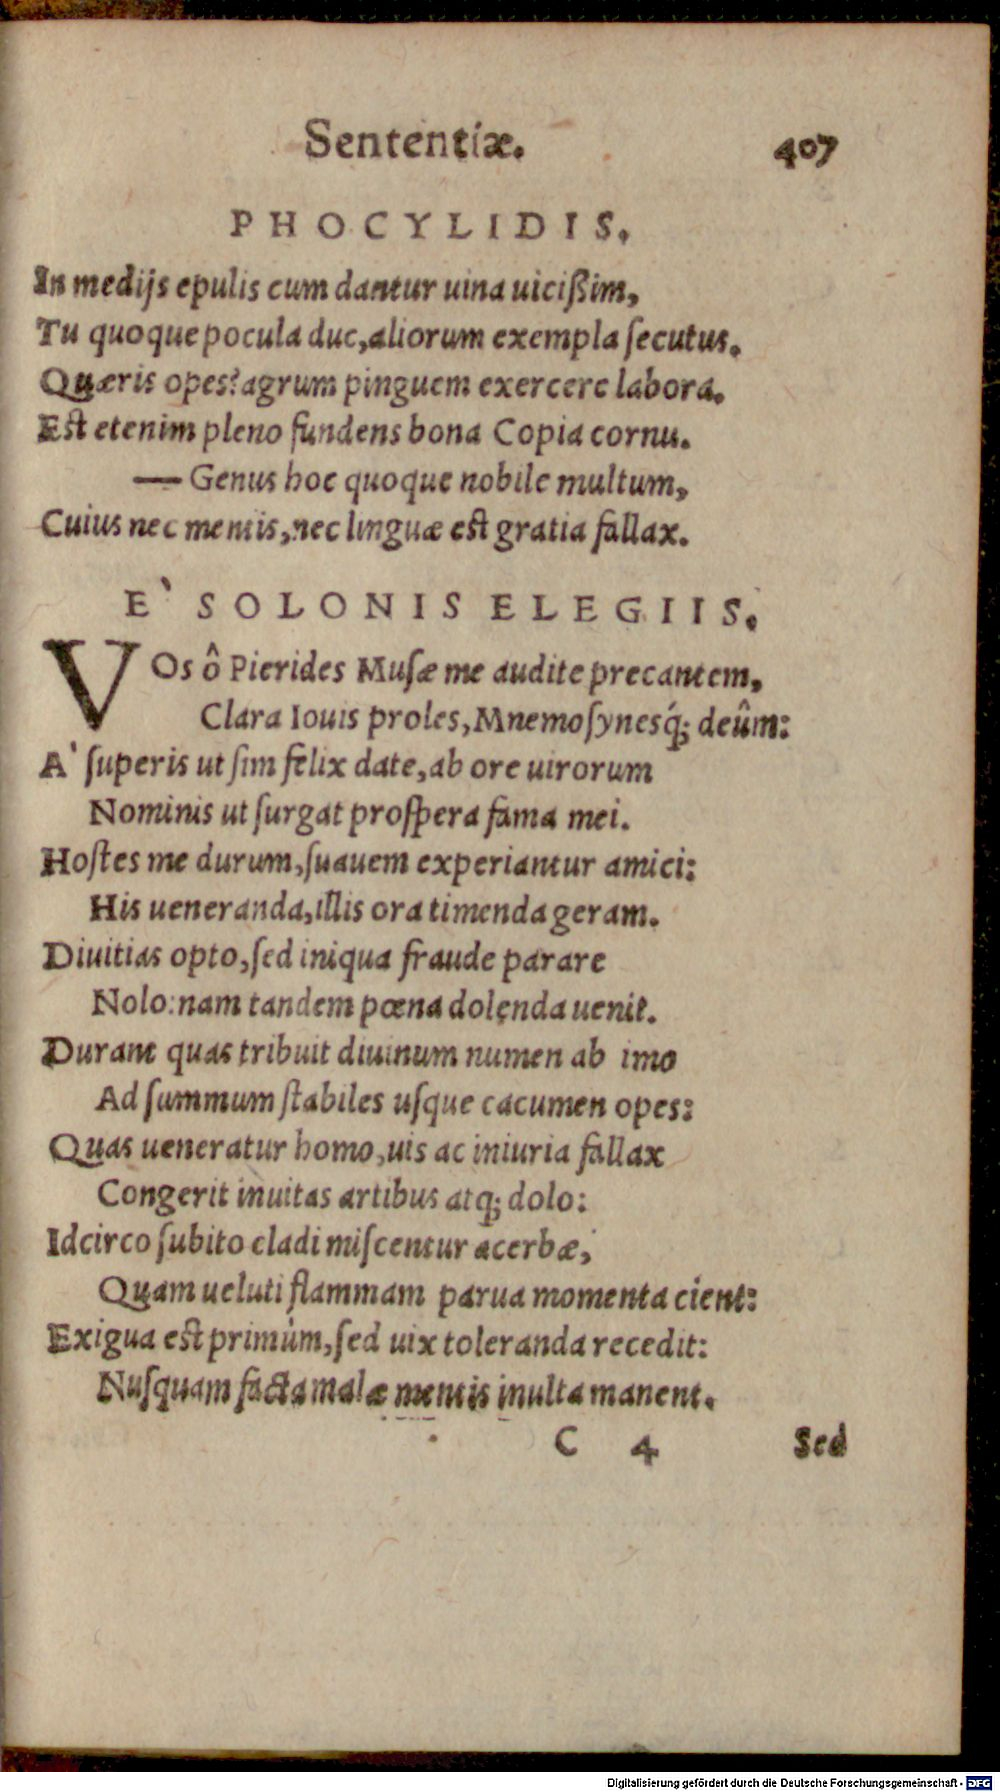 Sententiæ. 407
PHOCYLIDIS.
In medijs epulis cum dantur uina uicißim,
Tu quoque pocula duc, aliorum exempla ſecutus.
Quæris opes? agrum pinguem exercere labora.
Est etenim pleno fundens bona Copia cornu.
— Genus hoc quoque nobile multum,
Cuius nec mentis, nec linguæ est gratia fallax.
E` SOLONIS ELEGIIS.
VOs ô Pierides Muſæ me audite precantem,
Clara Iouis proles, Mnemoſynesq́; deûm:
A` ſuperis ut ſim felix date, ab ore uirorum
Nominis ut ſurgat proſpera fama mei.
Hoſtes me durum, ſuauem experiantur amici:
His ueneranda, illis ora timenda geram.
Diuitias opto, ſed iniqua fraude parare
Nolo: nam tandem pœna dolenda uenit.
Durant quas tribuit diuinum numen ab imo
Ad ſummum ſtabiles uſque cacumen opes:
Quas ueneratur homo, uis ac iniuria fallax
Congerit inuitas artibus atq; dolo:
Idcirco ſubito cladi miſcentur acerbæ,
Quam ueluti flammam parua momenta cient:
Exigua est primùm, ſed uix toleranda recedit:
Nuſquam facta malæ mentis inulta manent.
C 4 Sed
Digitalisierung gefördert durch die Deutsche Forschungsgemeinschaft - DFG